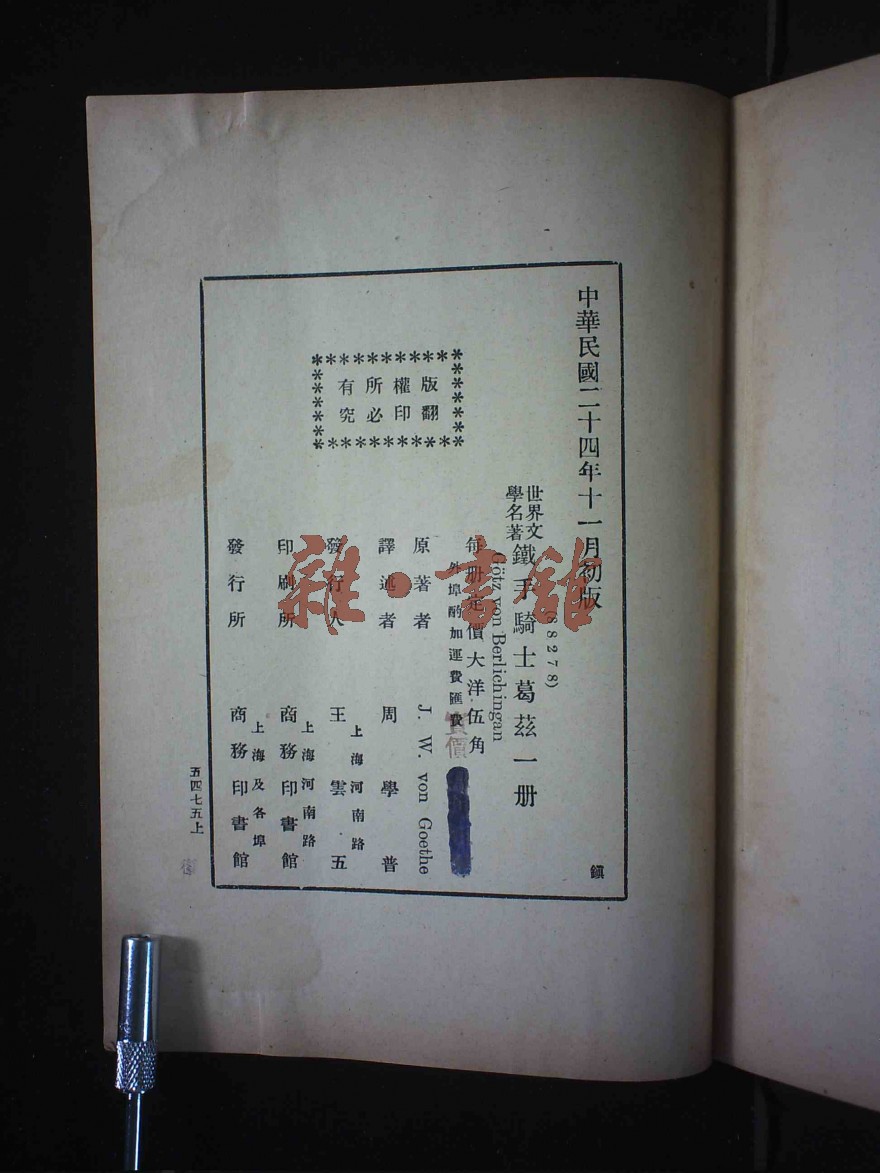 中華民國二十四年十一月初版
(68278)
世界文
學名著
鐵手騎士葛茲一册
Götz von Berlichingan
每册定價大洋伍角
外埠酌加運費匯費
實價
原著者 J. W. von Goethe
譯述者 周學普
上海河南路
發行人 王雲五
上海河南路
印刷所 商務印書館
上海及各埠
發行所 商務印書館
版權所有
翻印必究
鎭
五四七五上
雜·書館